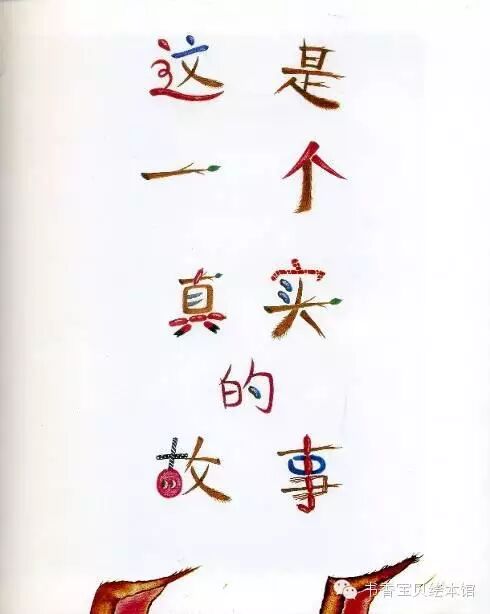 这是
一个
真实
的
故事
书香宝贝绘本馆